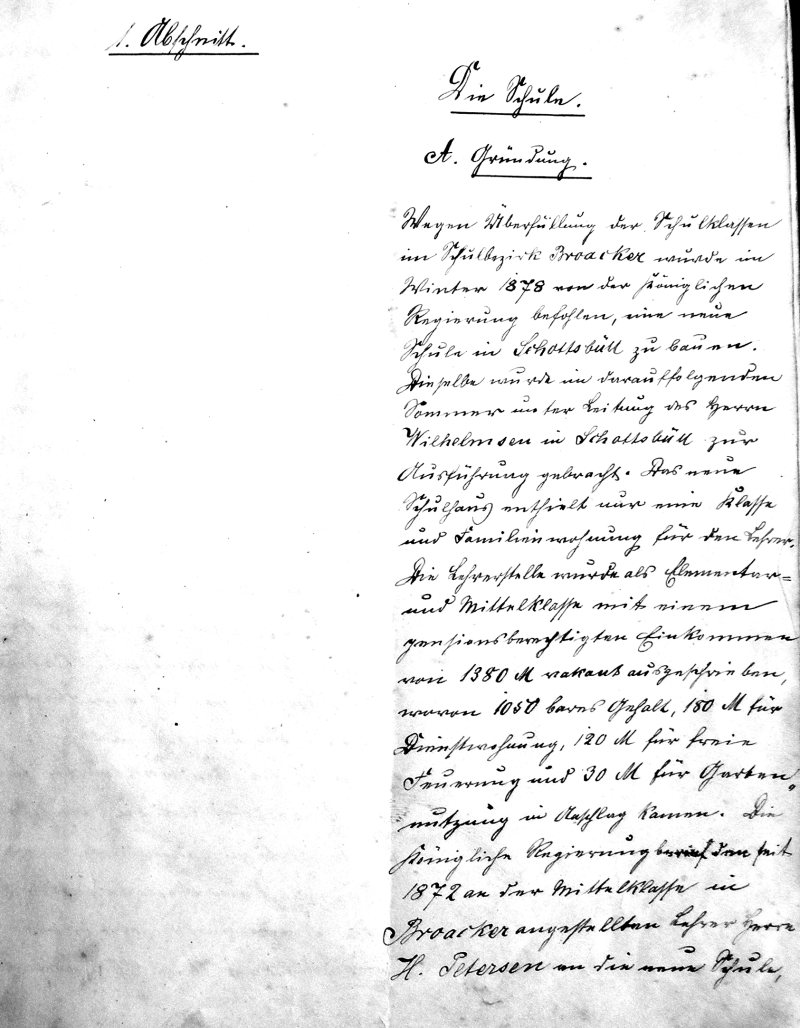 1. Abschnitt.
Die Schule.
A. Gründung.
Wegen Überfüllung der Schulklassen
im Schulbezirk Broacker wurde im
Winter 1878 von der Königlichen
Regierung befohlen, eine neue
Schule in Schottsbüll zu bauen.
Dieselbe wurde im darauffolgenden
Sommer unter Leitung des Herrn
Wilhelmsen in Schottsbüll zur
Ausführung gebracht. Das neue
Schulhaus enthielt nur eine Klasse
und Familienwohnung für den Lehrer.
Die Lehrerstelle wurde als Elementar=
und Mittelklasse mit einem
pensionsberechtigten Einkommen
von 1380 M vakant ausgeschrieben,
wovon 1050 bares Gehalt, 180 M für
Dienstwohnung, 120 M für freie
Feuerung und 30 M für Garten=
nutzung in Anschlag kamen. Die
Königliche Regierung berief den seit
1872 an der Mittelklasse in
Broacker angestellten Lehrer Herrn
H. Petersen an die neue Schule,